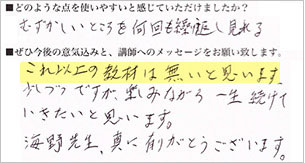 ■どのような点を使いやすいと感じていただけましたか?
むずかしいところを何回も繰返し見れる
■ぜひ今後の意気込みと、講師へのメッセージをお願い致します。
これ以上の教材は無いと思います。
少しづつですが、楽しみながら一生続けて
いきたいと思います。
海野先生、真に有がとうございます。